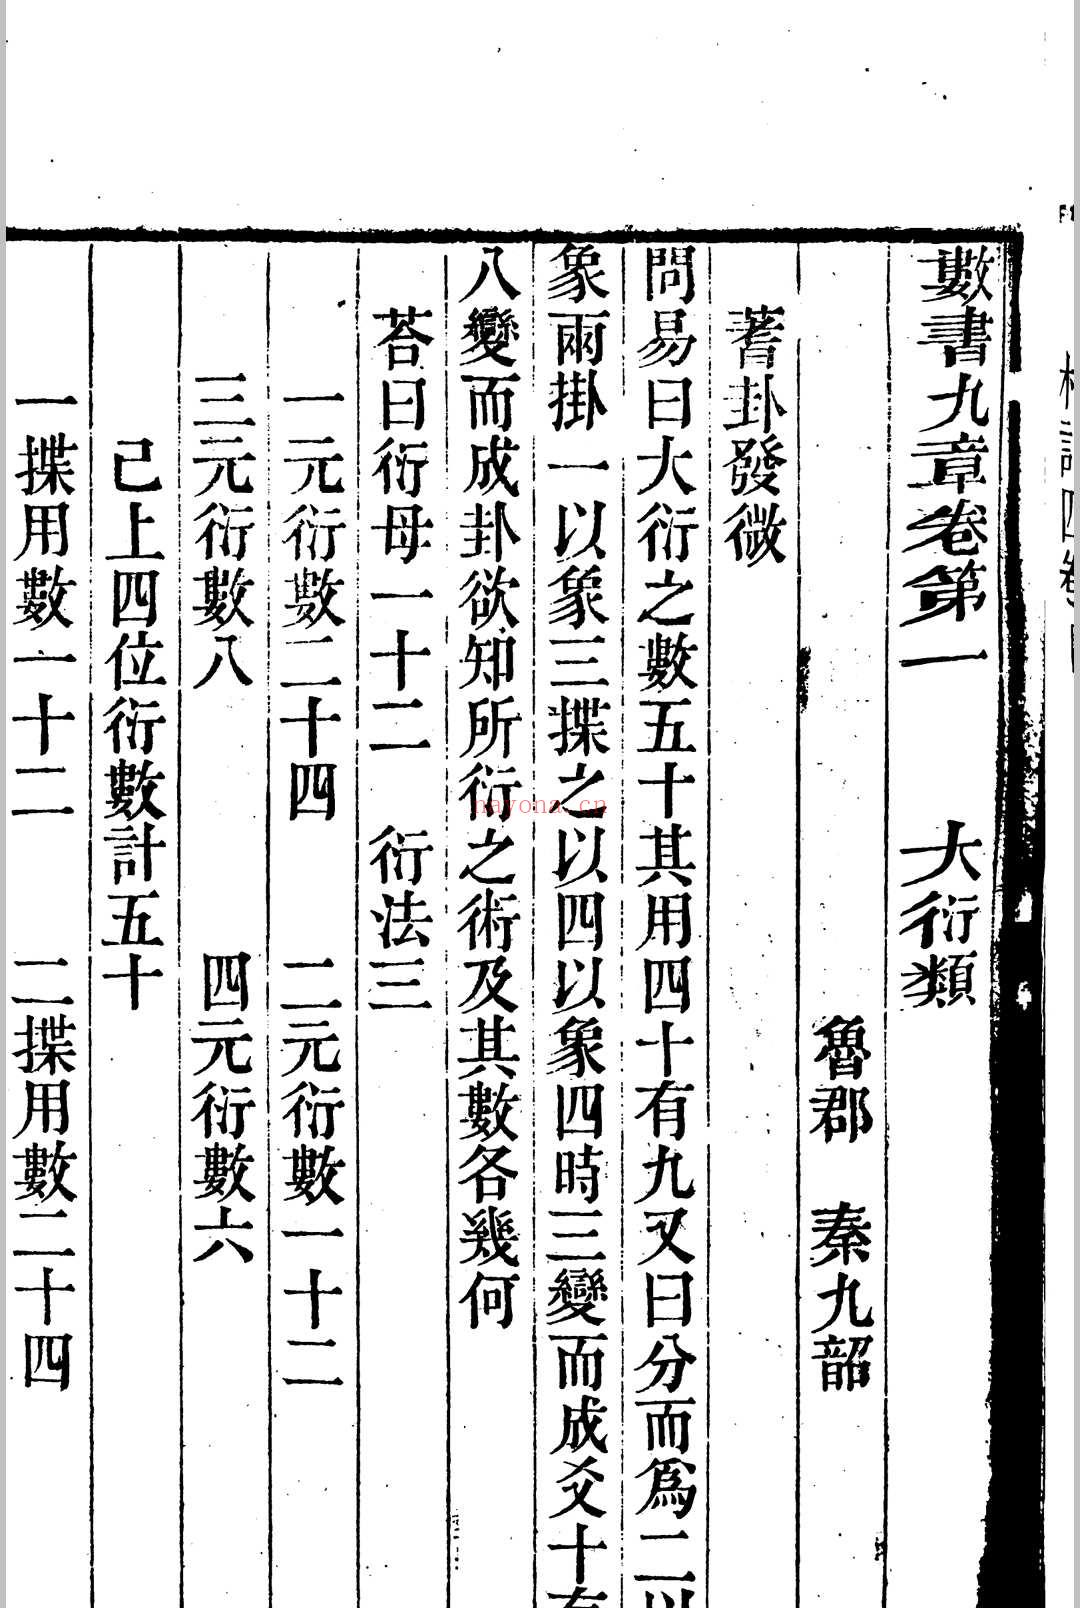 數書九章卷第一 大衍類
魯郡 秦九韶
蓍卦發微
問易曰大衍之數五十其用四十有九又曰分而爲二以
象兩掛一以象三揲之以四以象四時三變而成爻十有
八變而成卦欲知所衍之術及其數各幾何
荅曰衍母一十二 衍法三
一元衍數二十四 二元衍數一十二
三元衍數八 四元衍數六
己上四位衍數計五十
一揲用數一十二 二揲用數二十四
nayona.cn